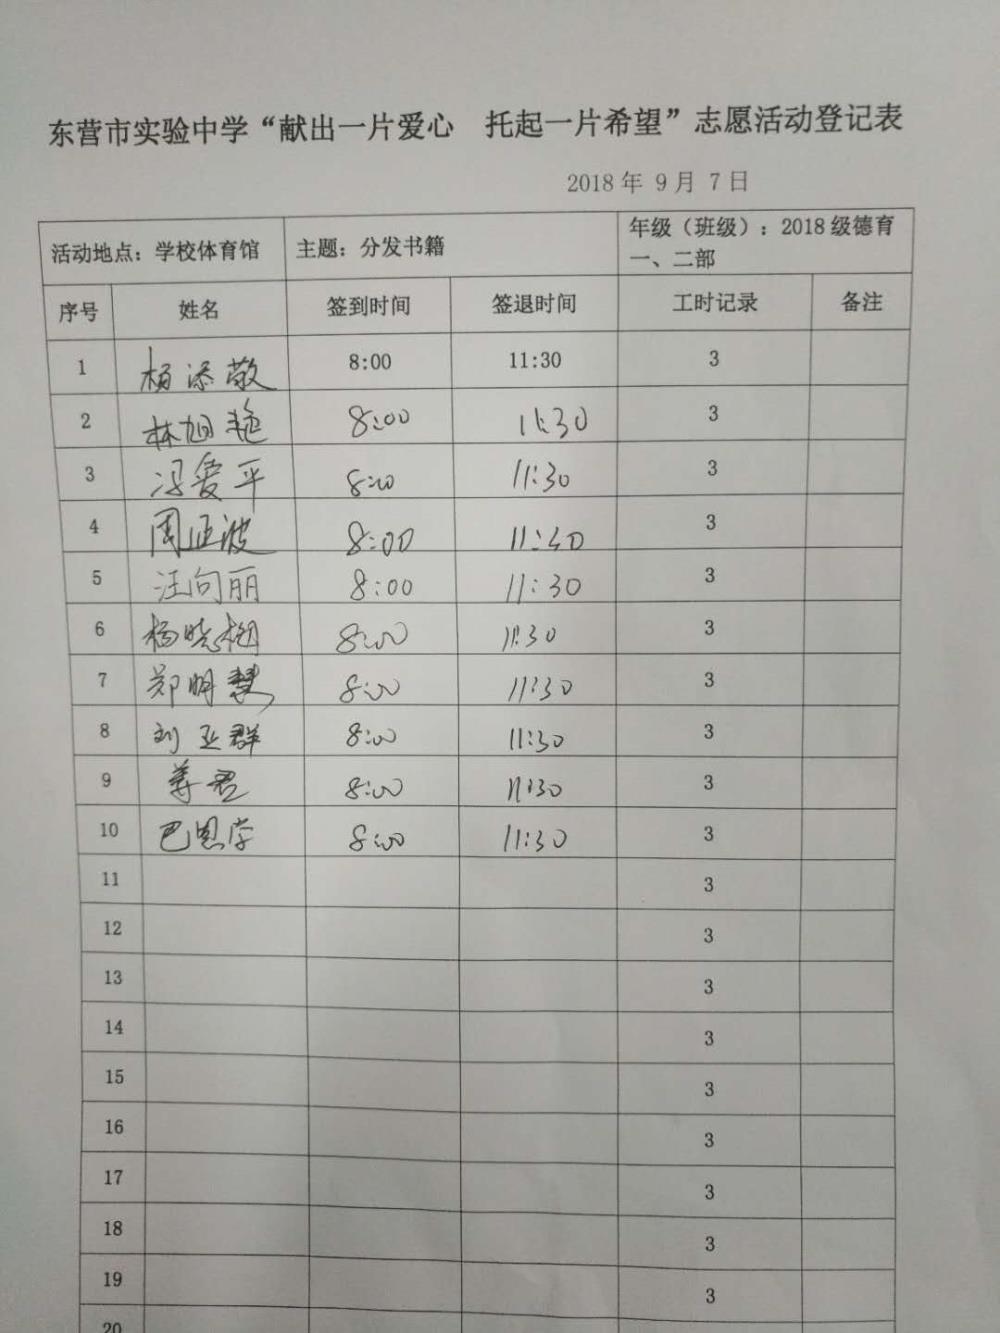 东营市实验中学“献出一片爱心 托起一片希望”志愿活动登记表
2018 年 9 月 7 日
活动地点：学校体育馆 主题：分发书籍 年级（班级）：2018 级德育
一、二部
序号 姓名 签到时间 签退时间 工时记录 备注
1 杨添敬 8:00 11:30 3
2 林旭艳 8:00 11:30 3
3 冯爱平 8:00 11:30 3
4 周正波 8:00 11:30 3
5 汪向丽 8:00 11:30 3
6 杨晓 8:00 11:30 3
7 郑明慧 8:00 11:30 3
8 刘亚群 8:00 11:30 3
9 姜君 8:00 11:30 3
10 巴恩 8:00 11:30 3
11 3
12 3
13 3
14 3
15 3
16 3
17 3
18 3
19 3
20